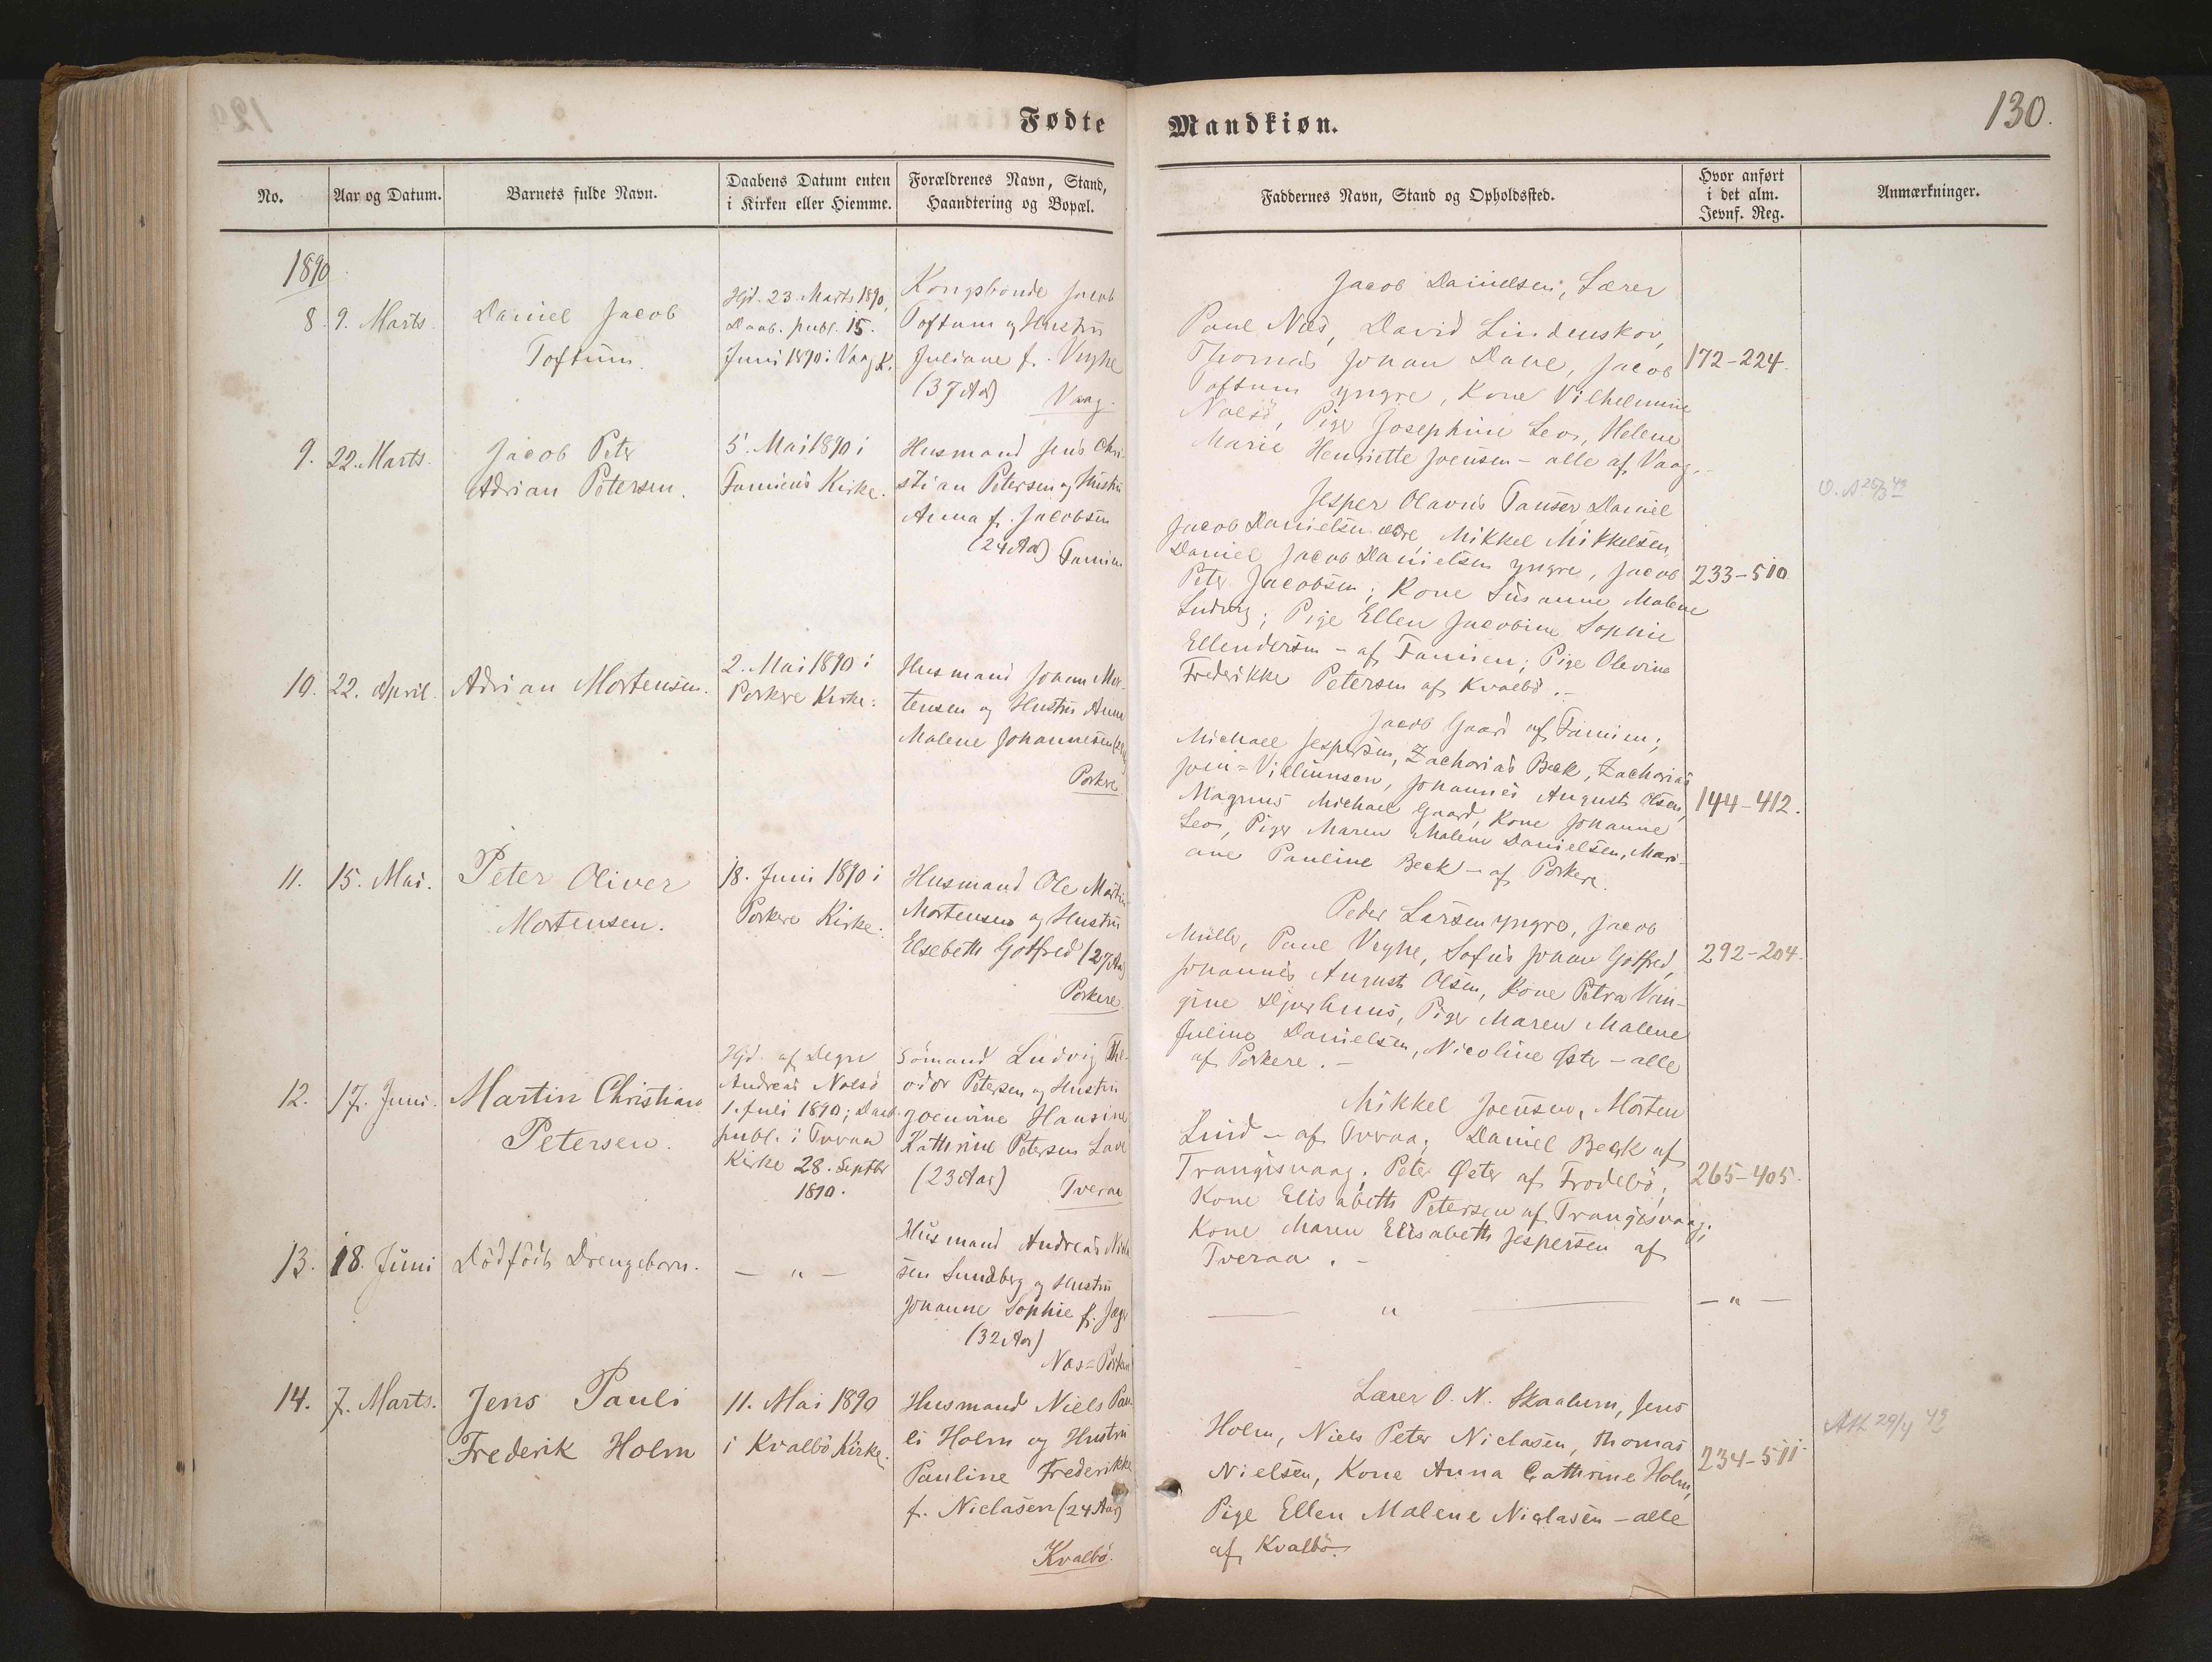 130.
Fødte Mandkiøn.
No.
Aar og Datum.
Barnets fulde Navn.
Daabens Datum enten
i Kirken eller Hiemme.
Forældrenes Navn, Stand,
Haandtering og Bopæl.
Faddernes Navn, Stand og Opholdssted.
Hvor anført
i det alm.
Jevnf. Reg.
Anmærkninger.
1890
8. 9. Marts.
Daniel Jacob
Toftum.
Hjd. 23. Marts 1890,
Daab. publ. 15.
Juni 1890 i Vaag K.
Kongsbonde Jacob
Toftum og Hustru
Juliane f. Veyhe
(37 Aar)
Vaag.
Jacob Danielsen, Lærer
Poul Næs, David Lindenskov,
Thomas Johan Dahl, Jacob
Toftum yngre, Kone Vilhelmine
Nolsö, Piger Josephine Leo, Helene
Marie Henriette Joensen - alle af Vaag.-
172-224.
9. 22. Marts.
Jacob Peter
Adrian Petersen.
5. Mai 1890 i
Famiens Kirke.
Husmand Jens Chri-
stian Petersen og Hustru
Anna f. Jacobsen
(24 Aar) Famien
Jesper Olavus Tausen, Daniel
Jacob Danielsen ældre, Mikkel Mikkelsen,
Daniel Jacob Danielsen yngre, Jacob
Peter Jacobsen; Kone Susanne Malene
Ludvig; Pige Ellen Jacobine Sophie
Ellendersen - af Famien; Pige Olevine
Frederikke Petersen af Kvalbö.-
233-510
10. 22. April.
Adrian Mortensen.
2. Mai 1890 i
Porkere Kirke.
Husmand Johan Mor-
tensen og Hustru Anne
Malene Johannesen
Porkere
Jacob Gaard af Famien;
Michael Jespersen, Zacharias Beck, Zacharias
Joen=Villumsen, Johannes August Olsen,
Magnus Michael Gaard, Kone Johanne
Leo, Piger Maren Malene Danielsen, Mari-
ane Pauline Beck - af Porkere.
144-412.
11. 15. Mai.
Peter Oliver
Mortensen.
18. Juni 1890 i
Porkere Kirke.
Husmand Ole Martin
Mortensen og Hustru
Elsebeth Gotfred (27 Aar)
Porkere.
Peder Larsen yngre, Jacob
Müller, Poul Veyhe, Sofus Johan Gotfred,
Johannes August Olsen, Kone Petra
Djurhuus, Piger Maren Malene
Juline Danielsen, Nicoline Øster - alle
af Porkere.-
292-204.
12. 17. Juni.
Martin Christian
Petersen.
Hjd. af Degn
Andreas Nolsö
1. Juli 1890; Daab.
publ. i Tveraa
Kirke 28. Septbr
1890.
Sömand Ludvig The-
odor Petersen og Hustru
Joenvine Hansine
Kathrine Petersen
(23 Aar)
Tveraa
Mikkel Joensen, Morten
Lind - af Tveraa; Daniel Beck af
Trangisvaag; Peter Øster af Frodebö;
Kone Elisabeth Petersen af Trangisvaag;
Kone Maren Elisabeth Jespersen af
Tveraa.-
265-405.
13. 18. Juni
Dödfödt Drengebarn.
- " -
Husmand Andreas
sen Sundberg og Hustru
Johanne Sophie f.
(32 Aar)
Næs=Porkere
- " -
- " -
14. 7. Marts.
Jens Pauli
Frederik Holm
11. Mai 1890
i Kvalbö Kirke.
Husmand Niels Pau-
li Holm og Hustru
Pauline Frederikke
f. Niclasen (24 Aar)
Kvalbö.
Lærer O. N. Skaalum, Jens
Holm, Niels Peter Niclasen, Thomas
Nielsen, Kone Anna Cathrine Holm,
Pige Ellen Malene Niclasen - alle
af Kvalbö.
234-511